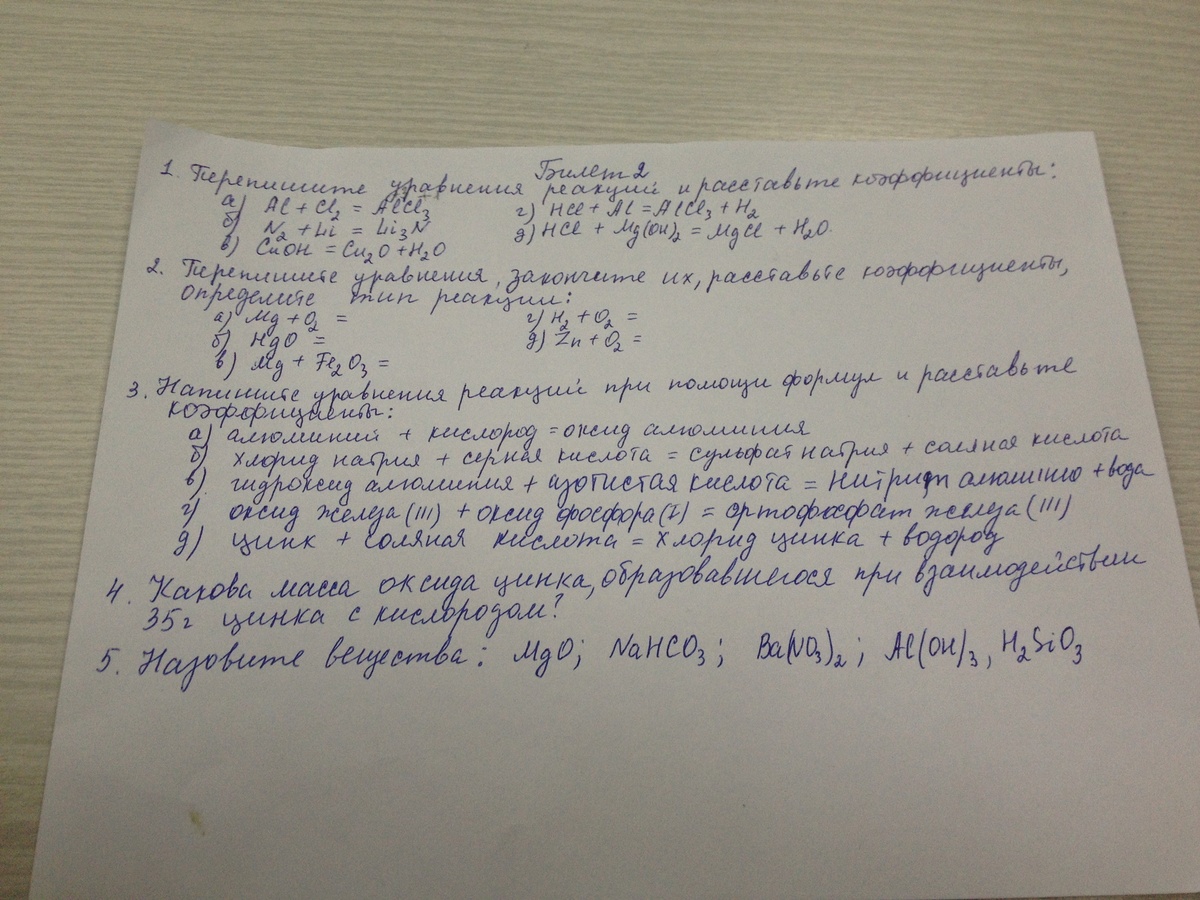 Билет 2
1. Перепишите уравнения реакций и расставьте коэффициенты:
а) Al + Cl₂ = AlCl₃ г) HCl + Al = AlCl₃ + H₂
б) N₂ + Li = Li₃N д) HCl + Mg(OH)₂ = MgCl + H₂O.
в) CuOH = Cu₂O + H₂O
2. Перепишите уравнения, закончите их, расставьте коэффициенты,
определите тип реакции:
а) Mg + O₂ = г) H₂ + O₂ =
б) HgO = д) Zn + O₂ =
в) Mg + Fe₂O₃ =
3. Напишите уравнения реакций при помощи формул и расставьте
коэффициенты:
а) алюминий + кислород = оксид алюминия
б) хлорид натрия + серная кислота = сульфат натрия + соляная кислота
в) гидроксид алюминия + азотистая кислота = нитрит алюминю + вода
г) оксид железа (III) + оксид фосфора (V) = ортофосфат железа (III)
д) цинк + соляная кислота = хлорид цинка + водород
4. Какова масса оксида цинка, образовавшегося при взаимодействии
35 г цинка с кислородом?
5. Назовите вещества: MgO; NaHCO₃; Ba(NO₃)₂; Al(OH)₃, H₂SiO₃